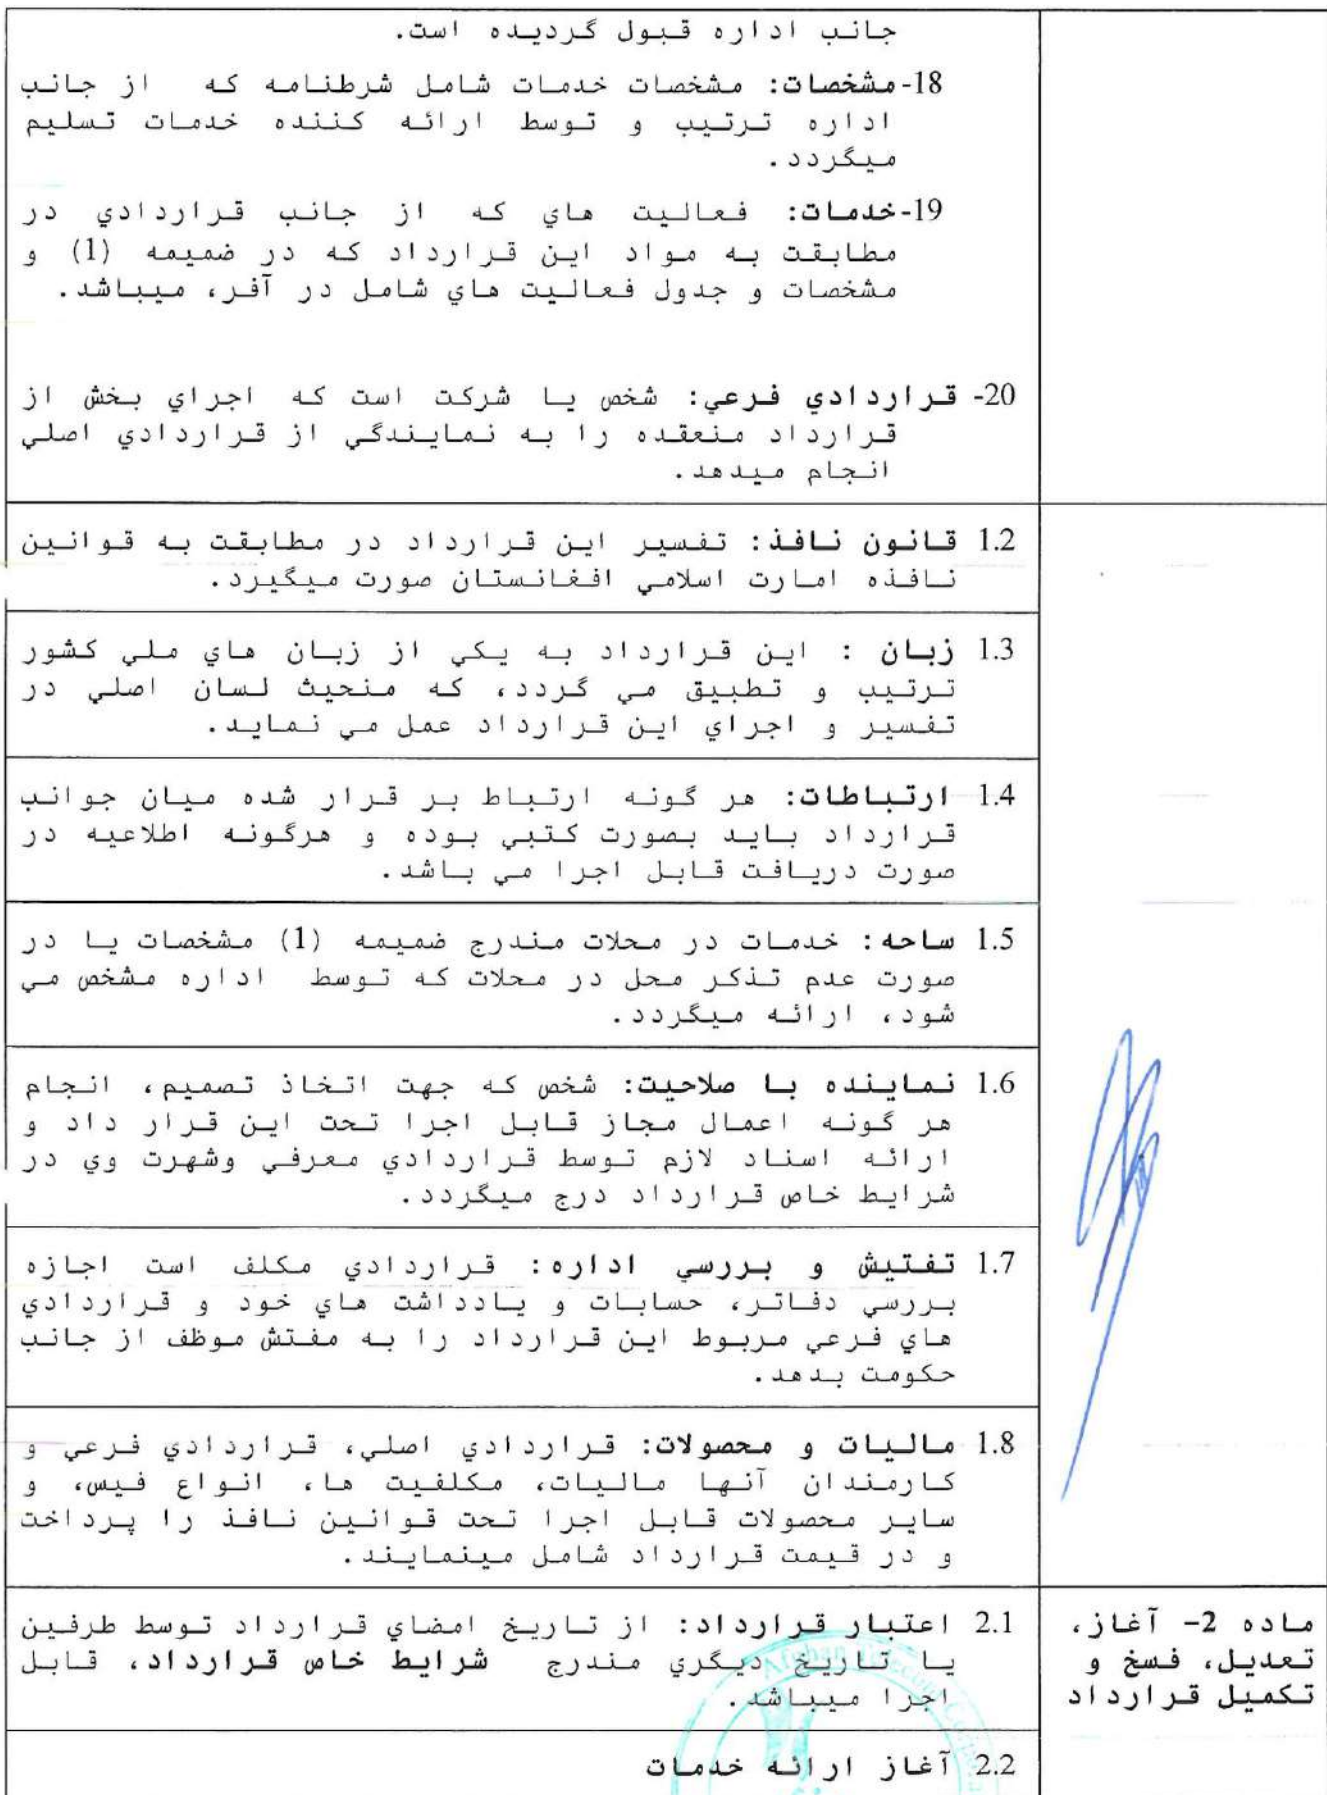 جانب اداره قبول گردیده است.
18-مشخصات: مشخصات خدمات شامل شرطنامه که از جانب
اداره ترتیب و توسط ارائه کننده خدمات تسلیم
میگردد.
19-خدمات: فعالیت هاي که از جانب قراردادي در
مطابقت به مواد این قرارداد که در ضمیمه (1) و
مشخصات و جدول فعالیت هاي شامل در آفر، میباشد.
20- قراردادي فرعي: شخص یا شرکت است که اجراي بخش از
قرارداد منعقده را به نمایندگي از قراردادي اصلي
انجام میدهد.
1.2 قانون نافذ: تفسیر این قرارداد در مطابقت به قوانین
نافذه امارت اسلامي افغانستان صورت میگیرد.
1.3 زبان : این قرارداد به یکي از زبان هاي ملي کشور
ترتیب و تطبیق مي گردد، که منحیث لسان اصلي در
تفسیر و اجراي این قرارداد عمل مي نماید.
1.4 ارتباطات: هر گونه ارتباط بر قرار شده میان جوانب
قرارداد باید بصورت کتبي بوده و هرگونه اطلاعیه در
صورت دریافت قابل اجرا مي باشد.
1.5 ساحه: خدمات در محلات مندرج ضمیمه (1) مشخصات یا در
صورت عدم تذکر محل در محلات که توسط اداره مشخص مي
شود، ارائه میگردد.
1.6 نماینده با صلاحیت: شخص که جهت اتخاذ تصمیم، انجام
هر گونه اعمال مجاز قابل اجرا تحت این قرار داد و
ارائه اسناد لازم توسط قراردادي معرفي وشهرت وي در
شرایط خاص قرارداد درج میگردد.
1.7 تفتیش و بررسي اداره: قراردادي مکلف است اجازه
بررسي دفاتر، حسابات و یادداشت هاي خود و قراردادي
هاي فرعي مربوط این قرارداد را به مفتش موظف از جانب
حکومت بدهد.
1.8 مالیات و محصولات: قراردادي اصلي، قراردادي فرعي و
کارمندان آنها مالیات، مکلفیت ها، انواع فیس، و
سایر محصولات قابل اجرا تحت قوانین نافذ را پرداخت
و در قیمت قرارداد شامل مینمایند.
ماده 2- آغاز،
تعدیل، فسخ و
تکمیل قرارداد
2.1 اعتبار قرارداد: از تاریخ امضاي قرارداد توسط طرفین
یا تاریخ دیگري مندرج شرایط خاص قرارداد، قابل
اجرا میباشد.
2.2 آغاز ارائه خدمات
Afghan Telecom